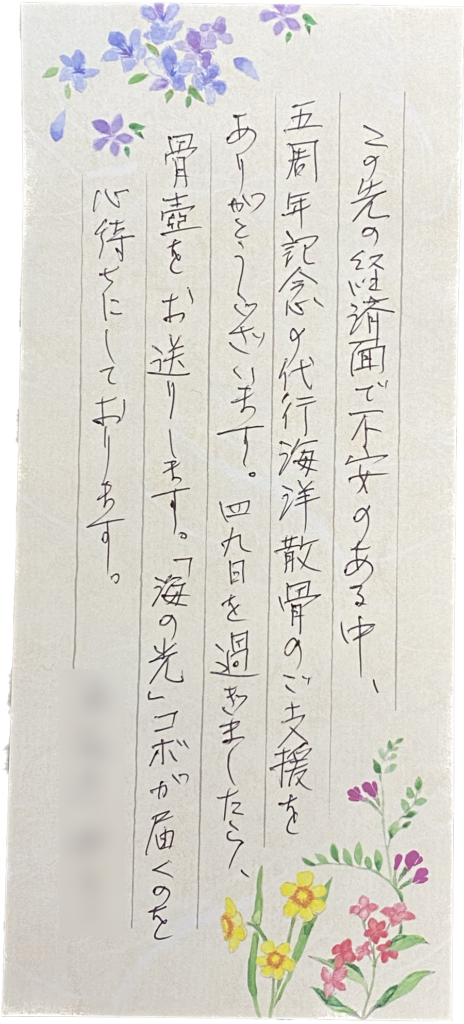 この先の経済面で不安のある中、
五周年記念の代行海洋散骨のご支援を
ありがとうございます。四九日を過ぎましたら、
骨壺をお送りします。「海の光」コボが届くのを
心待ちにしております。